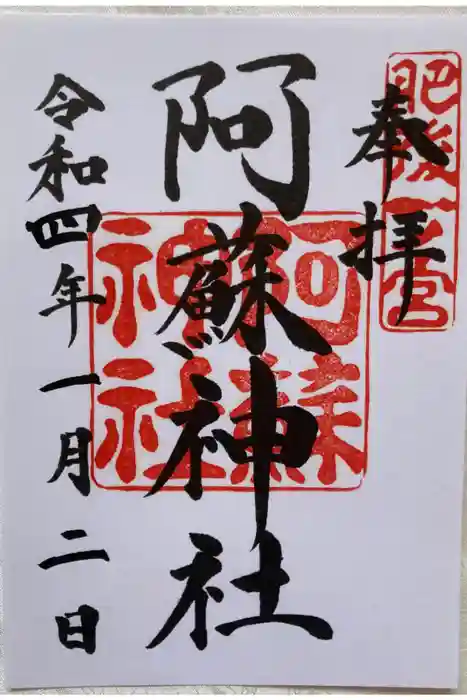 肥後一宮
奉拝
阿蘇神社
阿蘇
神社
令和四年一月二日